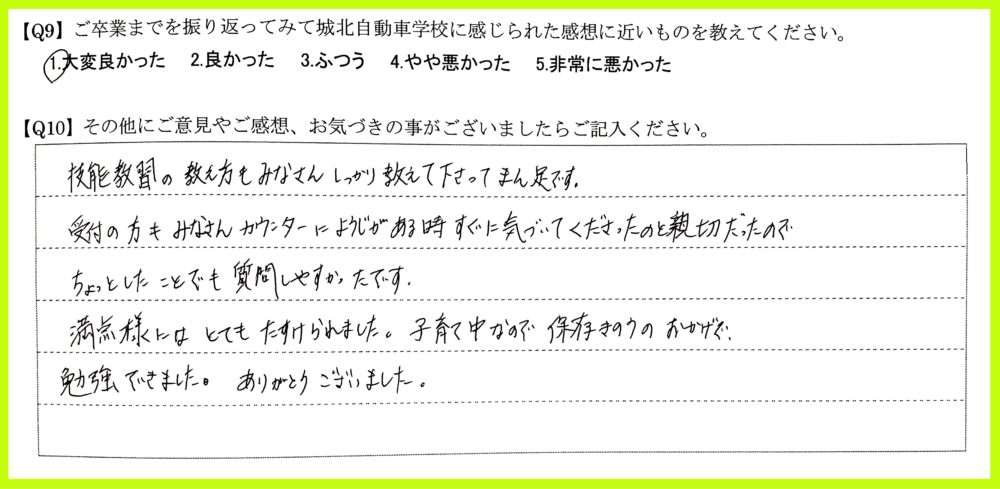 【Q9】ご卒業までを振り返ってみて城北自動車学校に感じられた感想に近いものを教えてください。
1.大変良かった 2.良かった 3.ふつう 4.やや悪かった 5.非常に悪かった
【Q10】その他にご意見やご感想、お気づきの事がございましたらご記入ください。
技能教習の教え方もみなさんしっかり教えて下さってまん足です。
受付の方もみなさんカウンターにようじがある時すぐに気づいてくださったのと親切だったので
ちょっとしたことでも質問しやすかったです。
満点様にはとてもたすけられました。子育て中なので保存きのうのおかげで
勉強できました。ありがとうございました。